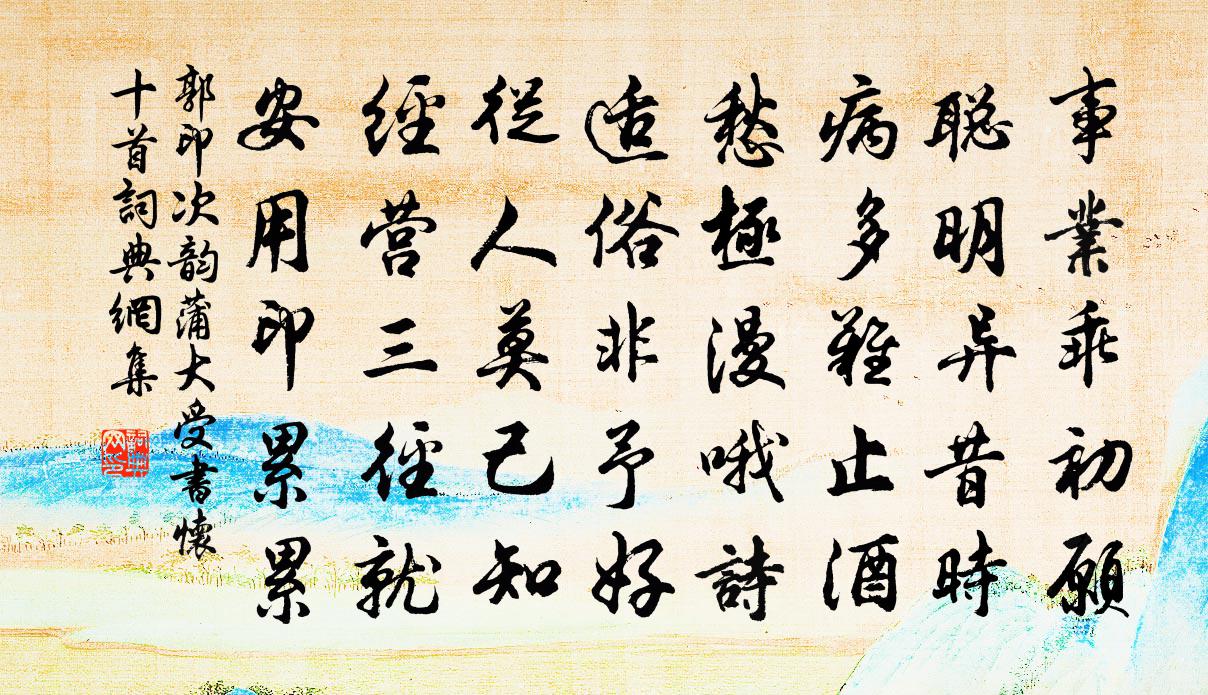 事業乖初願
聪明异昔時
病多難止酒
愁極漫哦詩
适俗非予好
從人莫己知
經营三徑就
安用印累累
郭印次韵蒲大受書懷
十首詞典網集